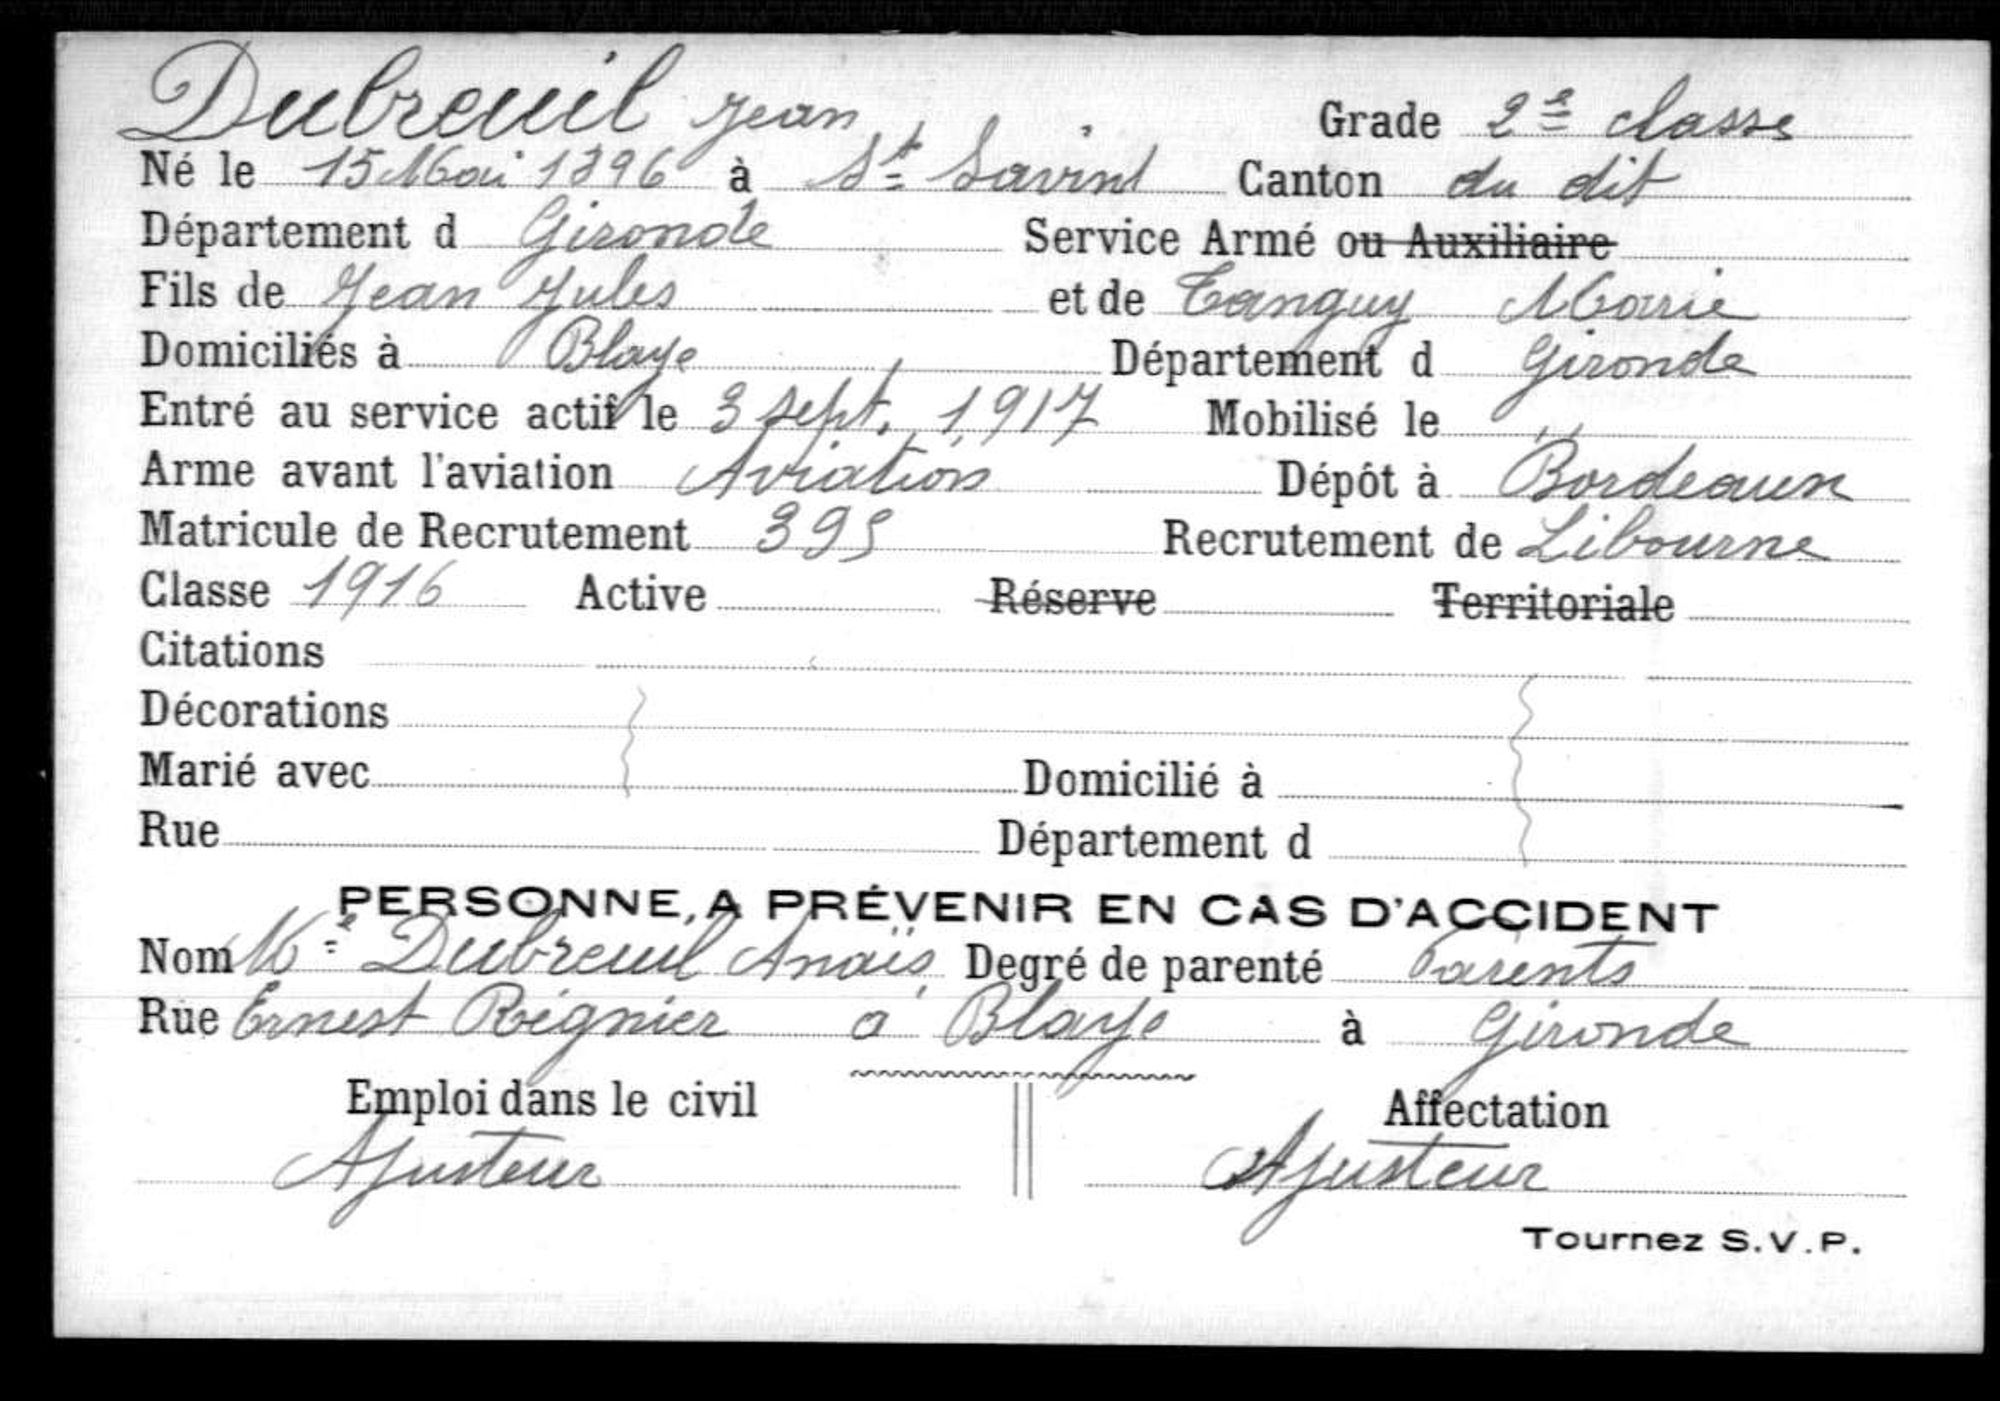 Dubreuil Jean Grade 2e classe
Né le 15 Mai 1896 à St Savint Canton du dit
Département d Gironde Service Armé ou Auxiliaire
Fils de Jean Jules et de Tanguy Marie
Domiciliés à Blaye Département d Gironde
Entré au service actif le 3 sept. 1917 Mobilisé le "
Arme avant l'aviation Aviation Dépôt à Bordeaux
Matricule de Recrutement 395 Recrutement de Libourne
Classe 1916 Active Réserve Territoriale
Citations
Décorations
Marié avec Domicilié à
Rue Département d
PERSONNE A PRÉVENIR EN CAS D'ACCIDENT
Nom Me Dubreuil Anaïs Degré de parenté Parents
Rue Ernest Régnier à Blaye à Gironde
Emploi dans le civil Affectation
Ajusteur Ajusteur
Tournez S.V.P.